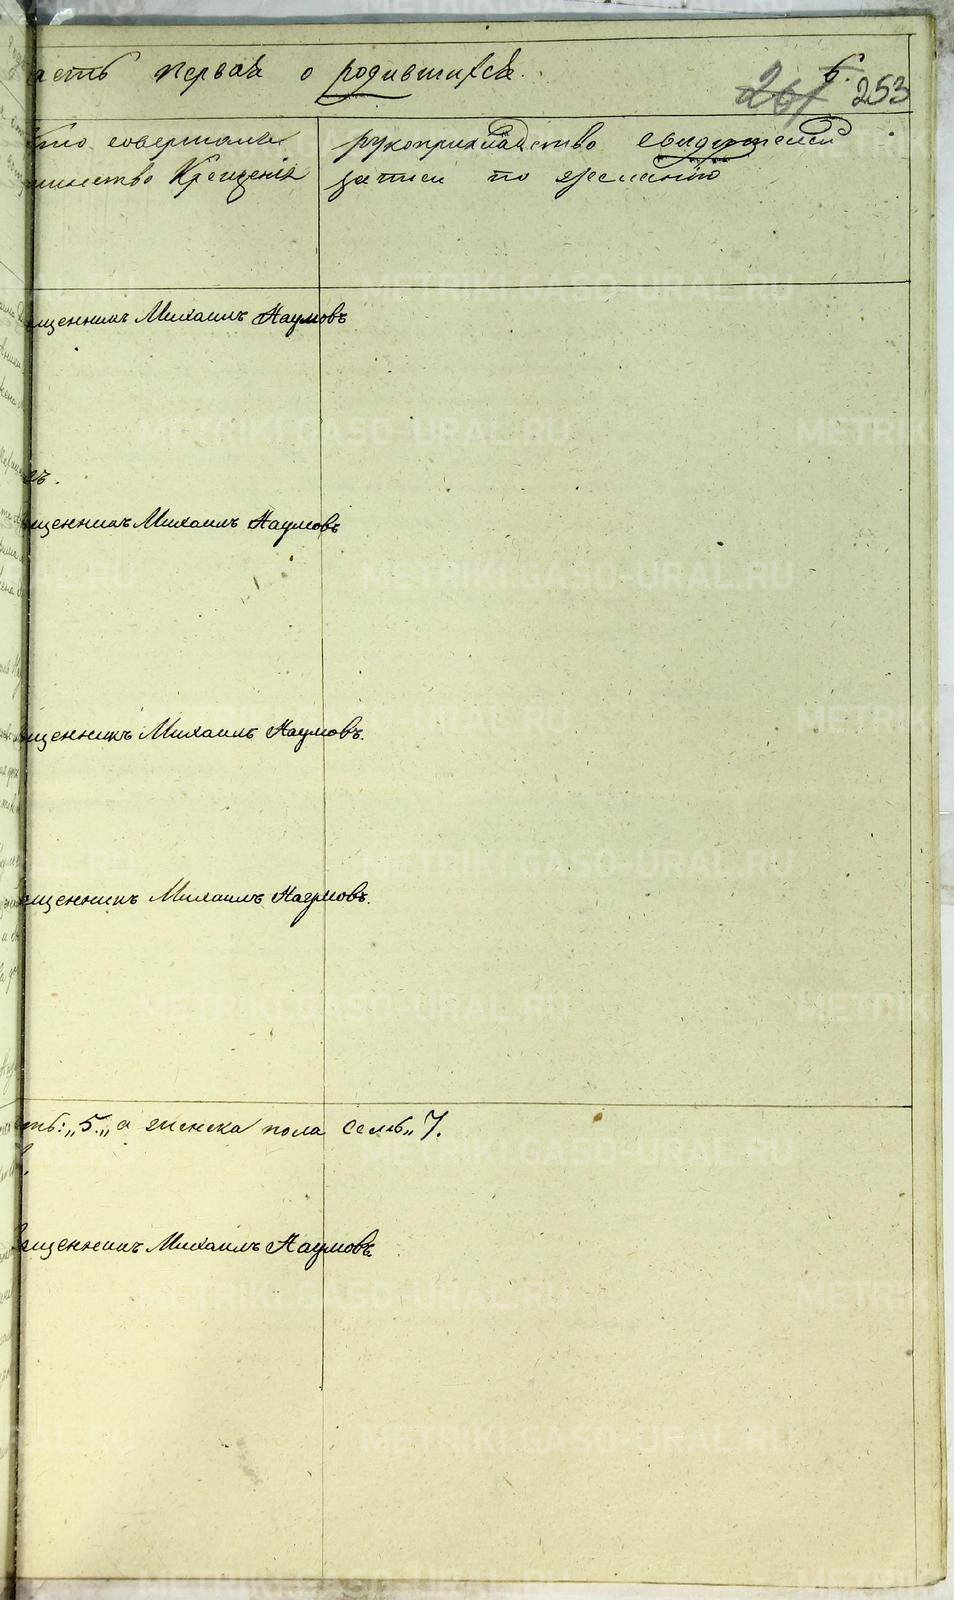 асть первая о родившихся.
6.
261 253
Кто совершалъ
таинство Крещенія
рукоприкладство свидѣтелей
записи по желанію
щенникъ Михаилъ Наумовъ
ъ.
щенникъ Михаилъ Наумовъ
щенникъ Михаилъ Наумовъ.
щенникъ Михаилъ Наумовъ.
ть: „5„ а женска пола семь„ 7.
щенникъ Михаилъ Наумовъ.
METRIKI.GASO-URAL.RU